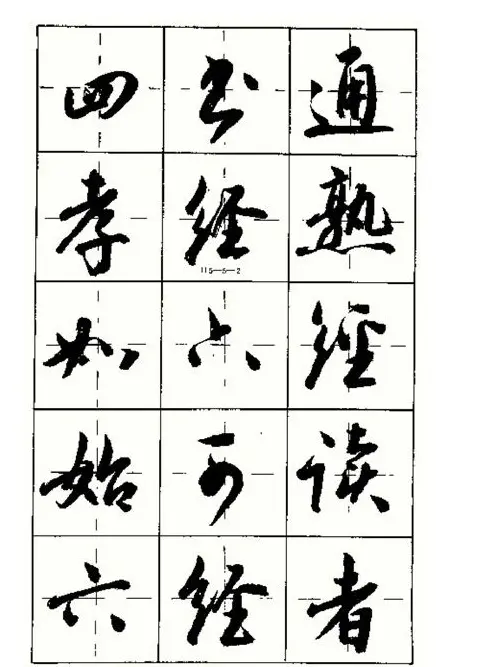 四书通
孝经熟
115—5—2
如六经
始可读
六经者